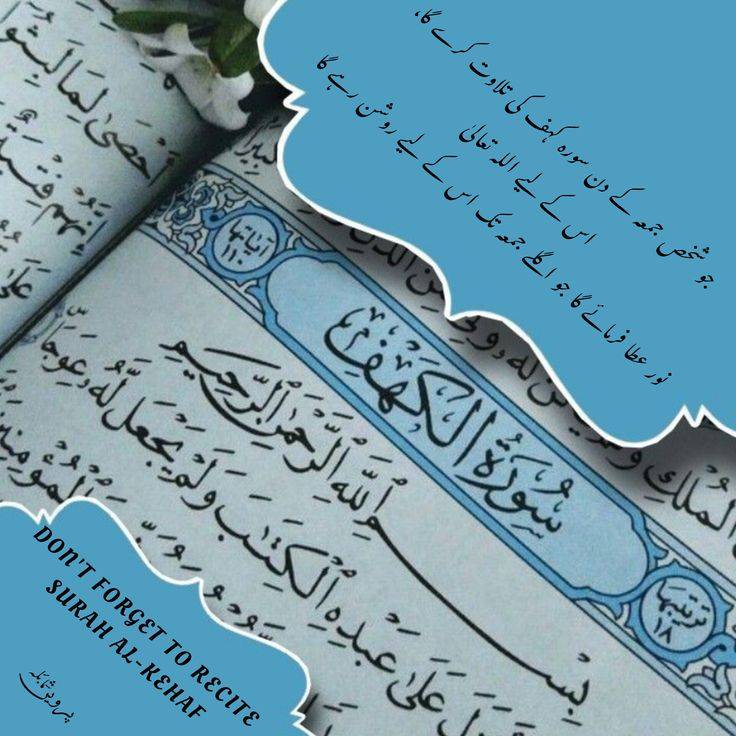 جو شخص جمعہ کے دن سورہ کہف کی تلاوت کرے گا،
اس کے لیے اللہ تعالیٰ
نور عطا فرمائے گا جو اگلے جمعہ تک اس کے لیے روشن رہے گا
أَحْصَىٰ لِمَا لَبِثُو
فِتْيَةٌ
عَلَىٰ
الْمُلْكِ
آيَاتُهَا ١١٠
سُورَةُ الْكَهْفِ
تَرْتِيبُهَا ١٨
بِسْمِ ٱللَّهِ ٱلرَّحْمَٰنِ ٱلرَّحِيمِ
عَلَىٰ عَبْدِهِ ٱلْكِتَٰبَ وَلَمْ يَجْعَل لَّهُۥ عِوَجَا
DON'T FORGET TO RECITE
SURAH AL-KEHAF